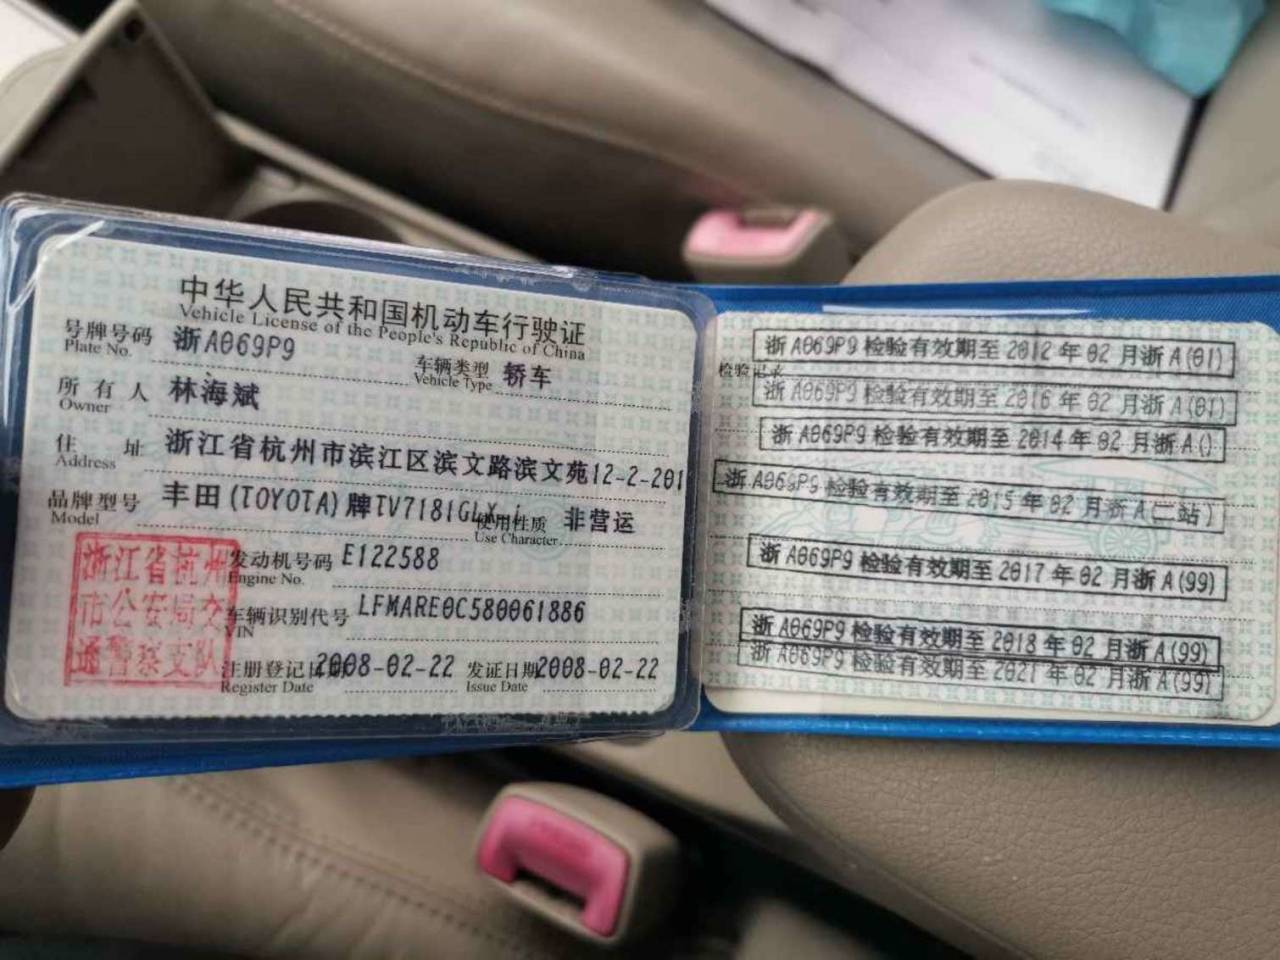 中华人民共和国机动车行驶证
Vehicle License of the People's Republic of China
号牌号码 浙A069P9 车辆类型 轿车
Plate No. Vehicle Type
所有人 林海斌
Owner
住址 浙江省杭州市滨江区滨文路滨文苑12-2-201
Address
品牌型号 丰田(TOYOTA)牌TV7181GLX-i 使用性质 非营运
Model Use Character
浙江省杭州
市公安局交
通警察支队
发动机号码 E122588
Engine No.
车辆识别代号 LFMARE0C580061886
VIN
注册登记日期 2008-02-22 发证日期 2008-02-22
Register Date Issue Date
检验记录
浙A069P9 检验有效期至 2012 年 02 月浙 A(01)
浙A069P9 检验有效期至 2016 年 02 月浙 A(01)
浙A069P9 检验有效期至 2014 年 02 月浙 A()
浙A069P9 检验有效期至 2015 年 02 月浙 A(二站)
浙A069P9 检验有效期至 2017 年 02 月浙 A(99)
浙A069P9 检验有效期至 2018 年 02 月浙 A(99)
浙A069P9 检验有效期至 2021 年 02 月浙 A(99)